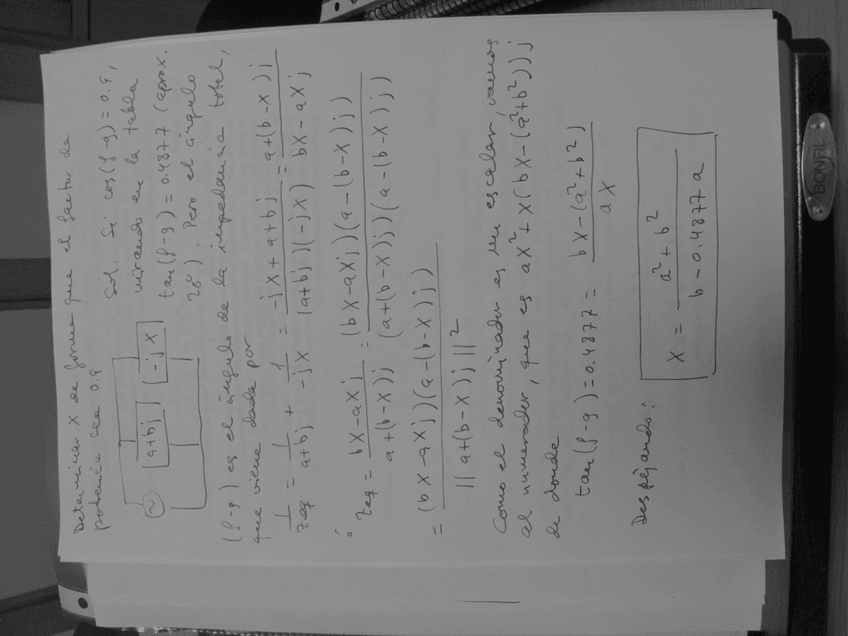 Determinar X de forma que el factor de
potencia sea 0.9
a+bj
-jX
Sol. Si cos(φ-φ)=0.9,
mirando en la tabla
tan(φ-φ)=0.4877 (aprox.
26º). Pero el ángulo
(φ-φ) es el ángulo de la impedancia total,
que viene dada por
1/Zeq = 1/(a+bj) + 1/(-jX) = (-jX+a+bj)/((a+bj)(-jX)) = (a+(b-X)j)/(bX-aXj)
Zeq = (bX-aXj)/(a+(b-X)j) = ((bX-aXj)(a-(b-X)j))/((a+(b-X)j)(a-(b-X)j))
= ((bX-aXj)(a-(b-X)j))/||a+(b-X)j||²
Como el denominador es un escalar, vamos
al numerador, que es aX²+X(bX-(a²+b²))j
de donde
tan(φ-φ)=0.4877 = (bX-(a²+b²))/(aX)
Despejando:
X = (a²+b²)/(b-0.4877a)
BONFIL